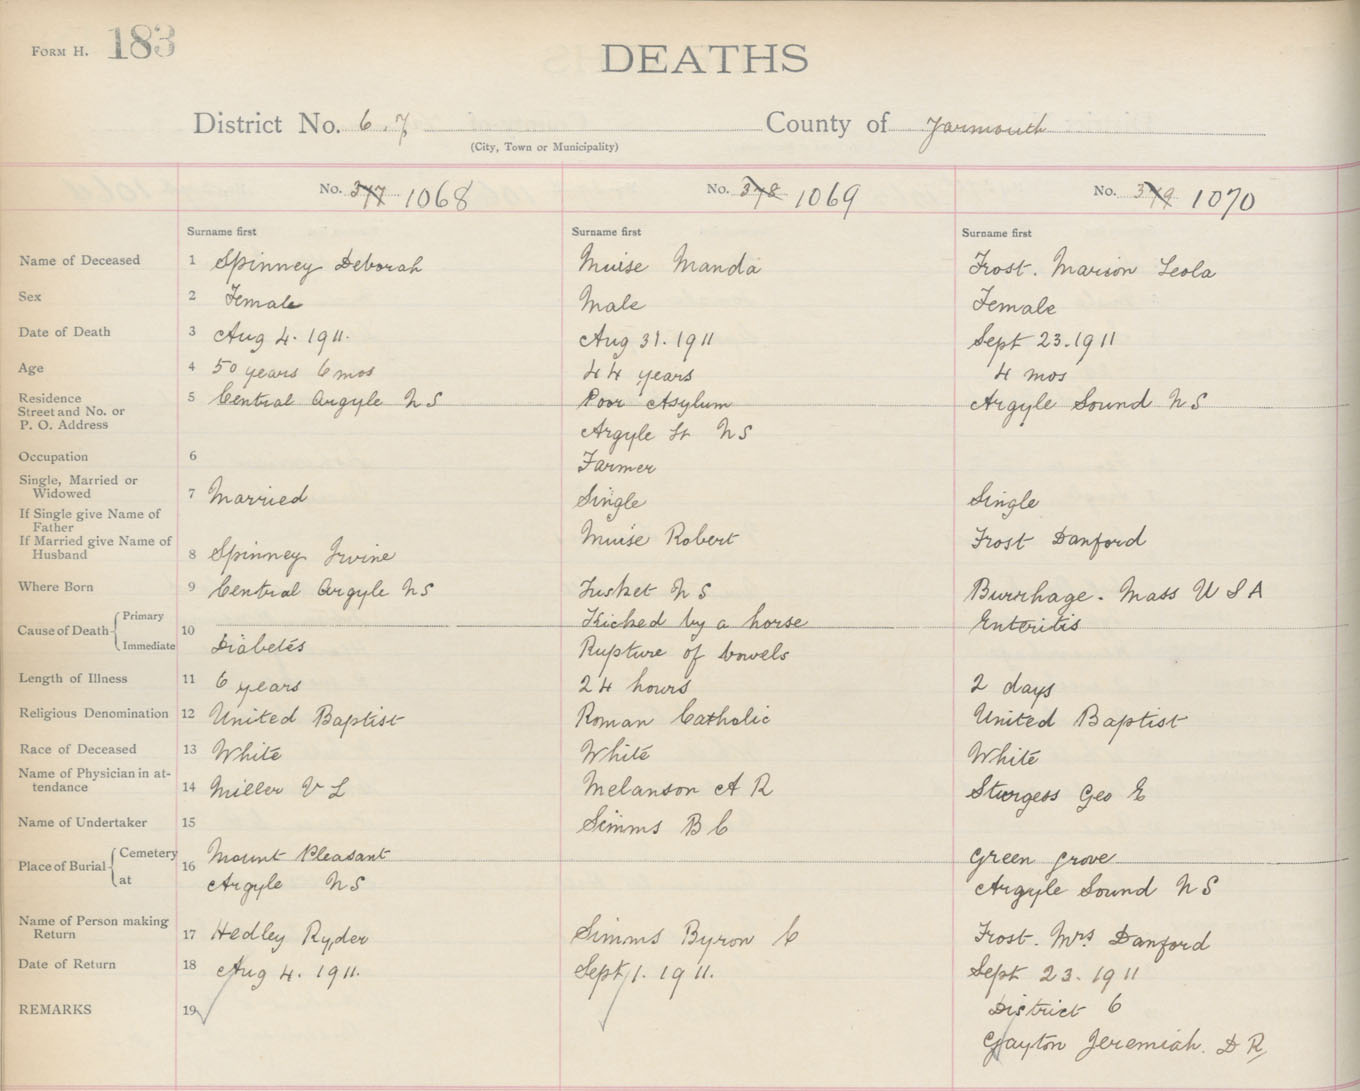 FORM H. 183
DEATHS
District No. 6.7 County of Yarmouth
(City, Town or Municipality)
No. 377 1068 No. 378 1069 No. 379 1070
Surname first Surname first Surname first
Name of Deceased 1 Spinney Deborah Muise Manda Frost. Marion Leola
Sex 2 Female Male Female
Date of Death 3 Aug 4. 1911. Aug 31. 1911 Sept 23. 1911
Age 4 50 years 6 mos 44 years 4 mos
Residence 5 Central Argyle NS Poor Asylum Argyle Sound NS
Street and No. or
P. O. Address Argyle St NS
Occupation 6 Farmer
Single, Married or
Widowed 7 Married Single Single
If Single give Name of
Father Muise Robert Frost Danford
If Married give Name of
Husband 8 Spinney Irvine
Where Born 9 Central Argyle NS Tusket NS Burrhage. Mass USA
Cause of Death Primary 10 Kicked by a horse Enteritis
Immediate Diabetes Rupture of bowels
Length of Illness 11 6 years 24 hours 2 days
Religious Denomination 12 United Baptist Roman Catholic United Baptist
Race of Deceased 13 White White White
Name of Physician in at-
tendance 14 Miller V L Melanson A R Sturgess Geo E
Name of Undertaker 15 Simms B C
Place of Burial Cemetery 16 Mount Pleasant Green Grove
at Argyle NS Argyle Sound NS
Name of Person making
Return 17 Hedley Ryder Simms Byron C Frost. Mrs. Danford
Date of Return 18 Aug 4. 1911. Sept 1. 1911. Sept 23. 1911
REMARKS 19 District 6
Gayton Jeremiah. D R,